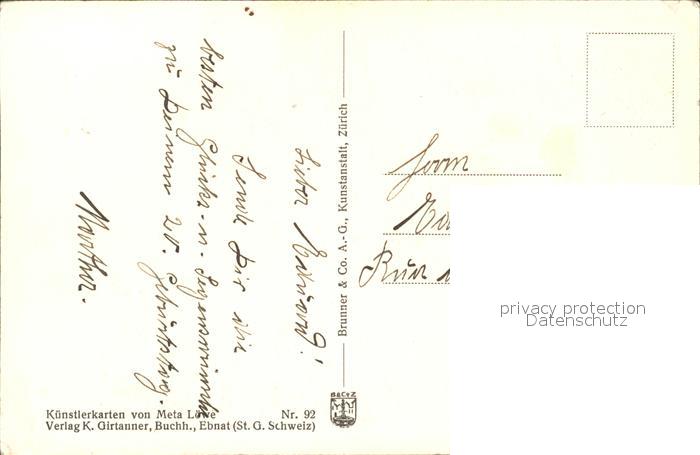 Lieber Eduard!
Sende Dir die
besten Glücks- u. Segenswünsche
zu Deinem 20. Geburtstag.
Martha.
Brunner & Co. A.-G., Kunstanstalt, Zürich
Herrn
B&C°Z
Künstlerkarten von Meta Löwe Nr. 92
Verlag K. Girtanner, Buchh., Ebnat (St. G. Schweiz)
privacy protection
Datenschutz